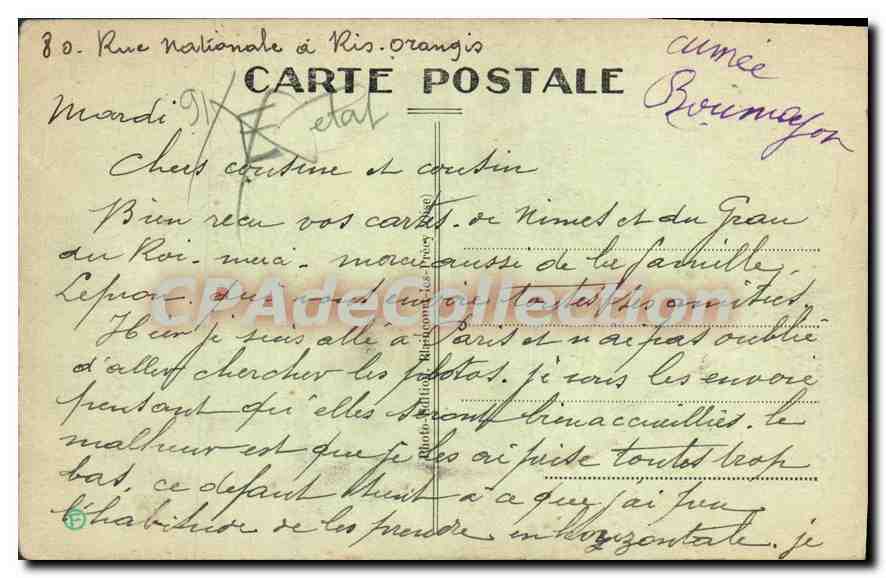 80. Rue Nationale à Ris. Orangis
CARTE POSTALE
aimée
Boumayon
Mardi
91
E
etat
Chers cousine et cousin
Bien reçu vos cartes. de Nimes et du Grau
du Roi - merci - merci aussi de la famille
Lepron qui vous envoie toutes ses amitiés.
Hier je suis allé à Paris et n'ai pas oublié
d'aller chercher les photos. je vous les envoie
pensant qu'elles seront bien accueillies. le
malheur est que je les ai prise toutes trop
bas, ce defaut tient à ce que j'ai peu
l'habitude de les prendre en horyzontale. je
Photo-Edition, Blaincourt-les-Précy (Oise)
CPAdeCollection
F